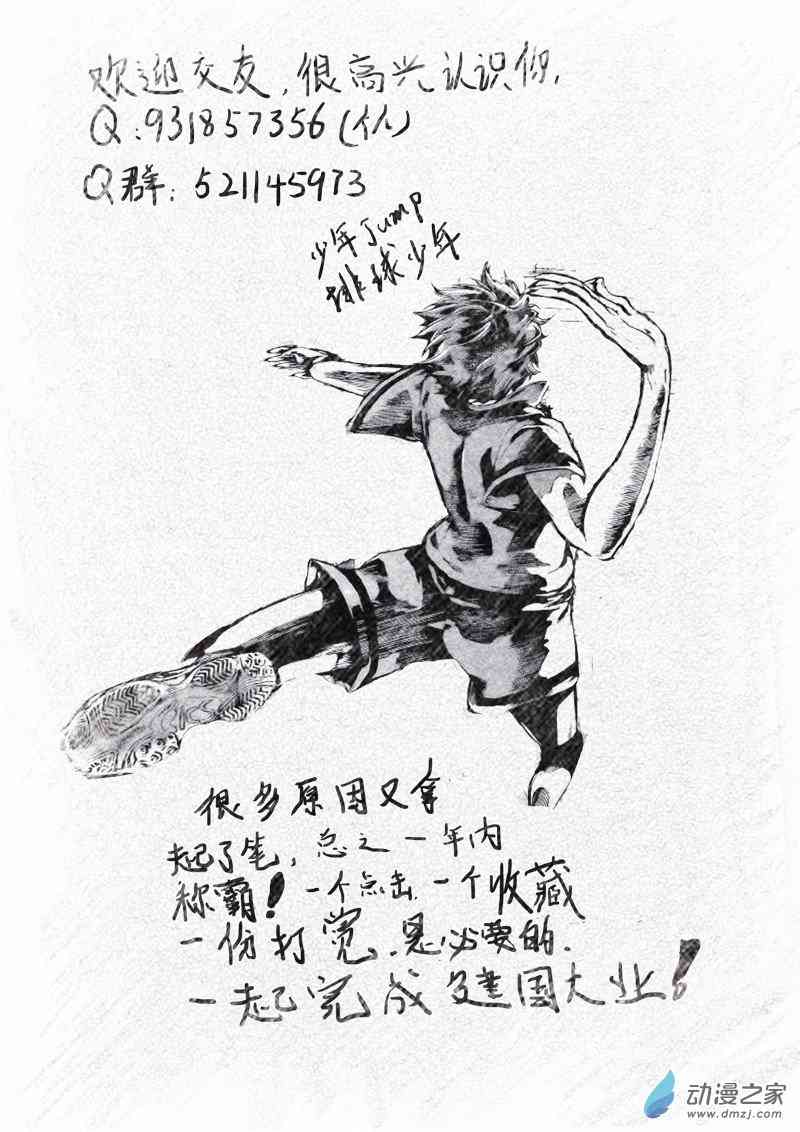 欢迎交友，很高兴认识你.
Q：931857356（个人）
Q群：521145973
少年Jump
排球少年
很多原因又拿
起了笔，总之一年内
称霸！一个点击.一个收藏
一份打赏.是必要的.
一起完成建国大业！
动漫之家
www.dmzj.com